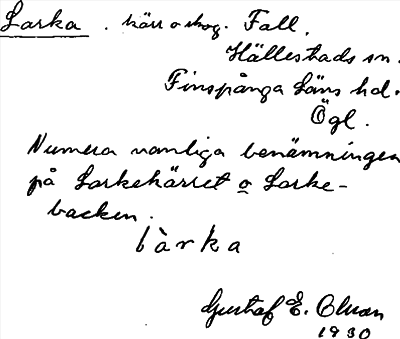 Larka . kärr o skog. Fall.
Hällestads sn.
Finspånga Läns hd.
Ögl.
Numera vanliga benämningen
på Larkekärret o Larke-
backen.
làrka
Gustaf E. Olsson
1930